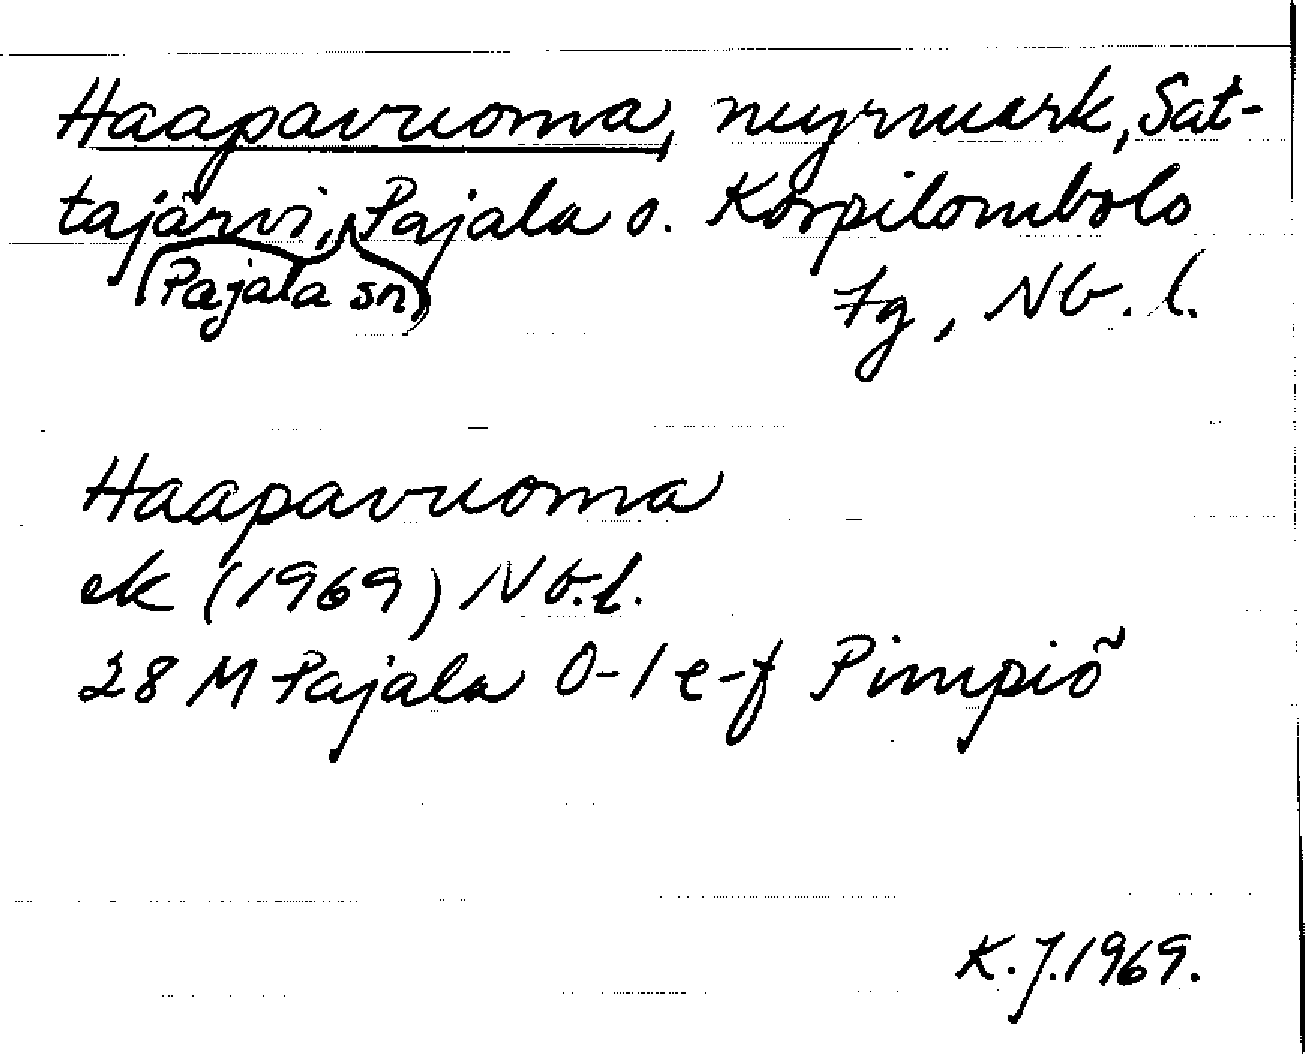 Haapavuoma, myrmark, Sat-
tajärvi, Pajala o. Korpilombolo
(Pajala sn)
tg, Nb. l.
Haapavuoma
ek (1969) Nb.l.
28 M Pajala 0-1 e-f Pimpiö
K.J. 1969.